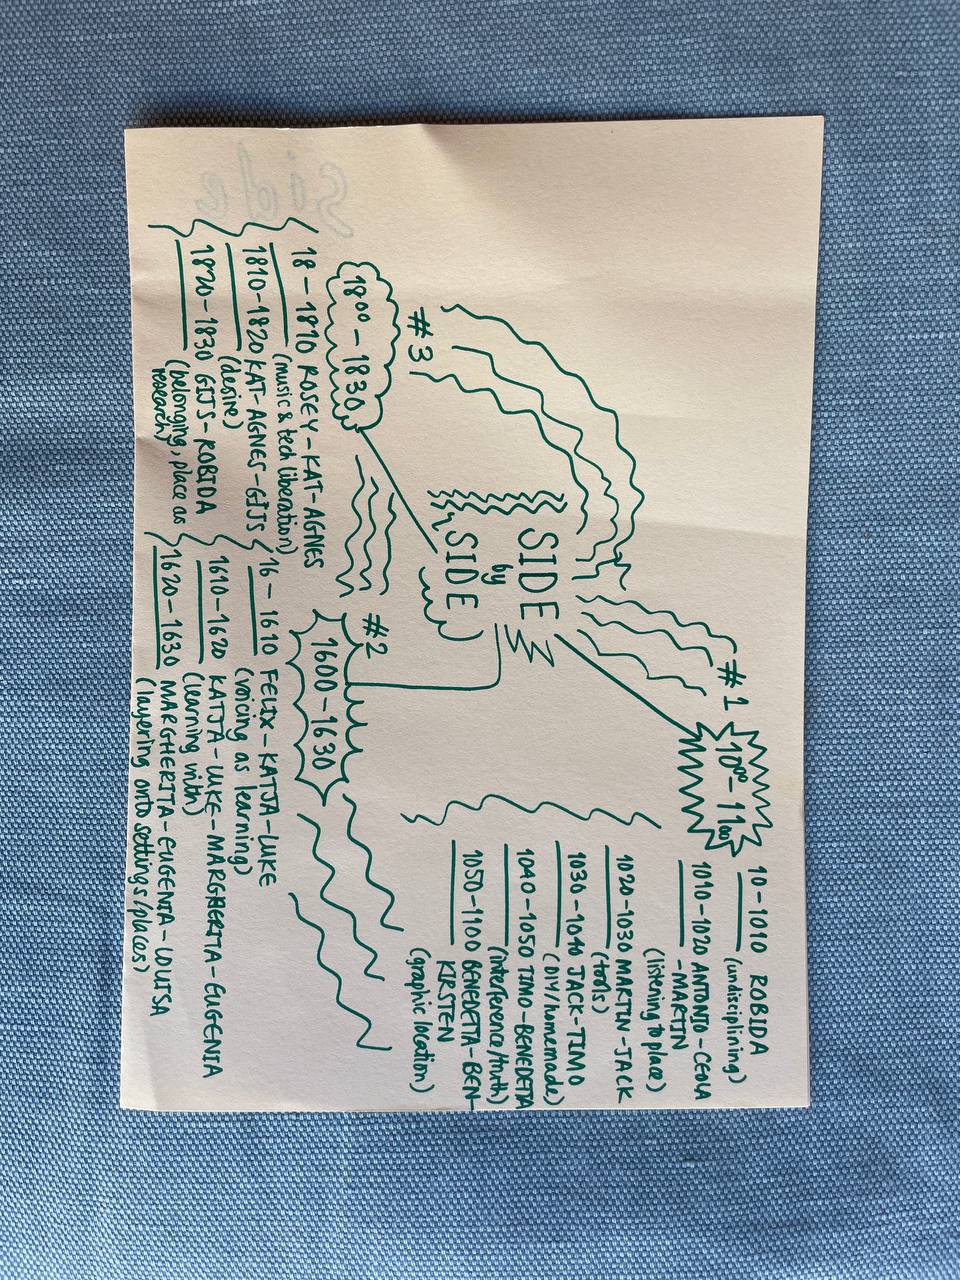 SIDE
by
SIDE
#1
10⁰⁰-11⁰⁰
10-1010 ROBIDA
(undisciplining)
1010-1020 ANTONIO-CEOLA
-MARTIN
(listening to place)
1020-1030 MARTIN-JACK
(tools)
1030-1040 JACK-TIMO
(DIY/homemade)
1040-1050 TIMO-BENEDETTA
(interference/truth)
1050-1100 BENEDETTA-BEN-
KIRSTEN
(graphic location)
#2
1600-1630
16-1610 FELIX-KATJA-LUKE
(voicing as learning)
1610-1620 KATJA-LUKE-MARGHERITA-EUGENIA
(learning with)
1620-1630 MARGHERITA-EUGENIA-LOUISA
(layering onto settings/places)
#3
18⁰⁰-1830
18-1810 ROSEY-KAT-AGNES
(music & tech liberation)
1810-1820 KAT-AGNES-GIJS
(desire)
1820-1830 GIJS-ROBIDA
(belonging, place as
research)
side